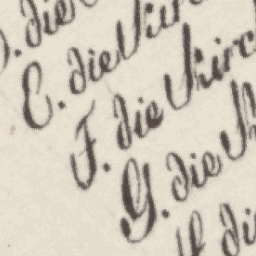 D. die
E. die Kir
F. die Kirc
G. die K
H. di